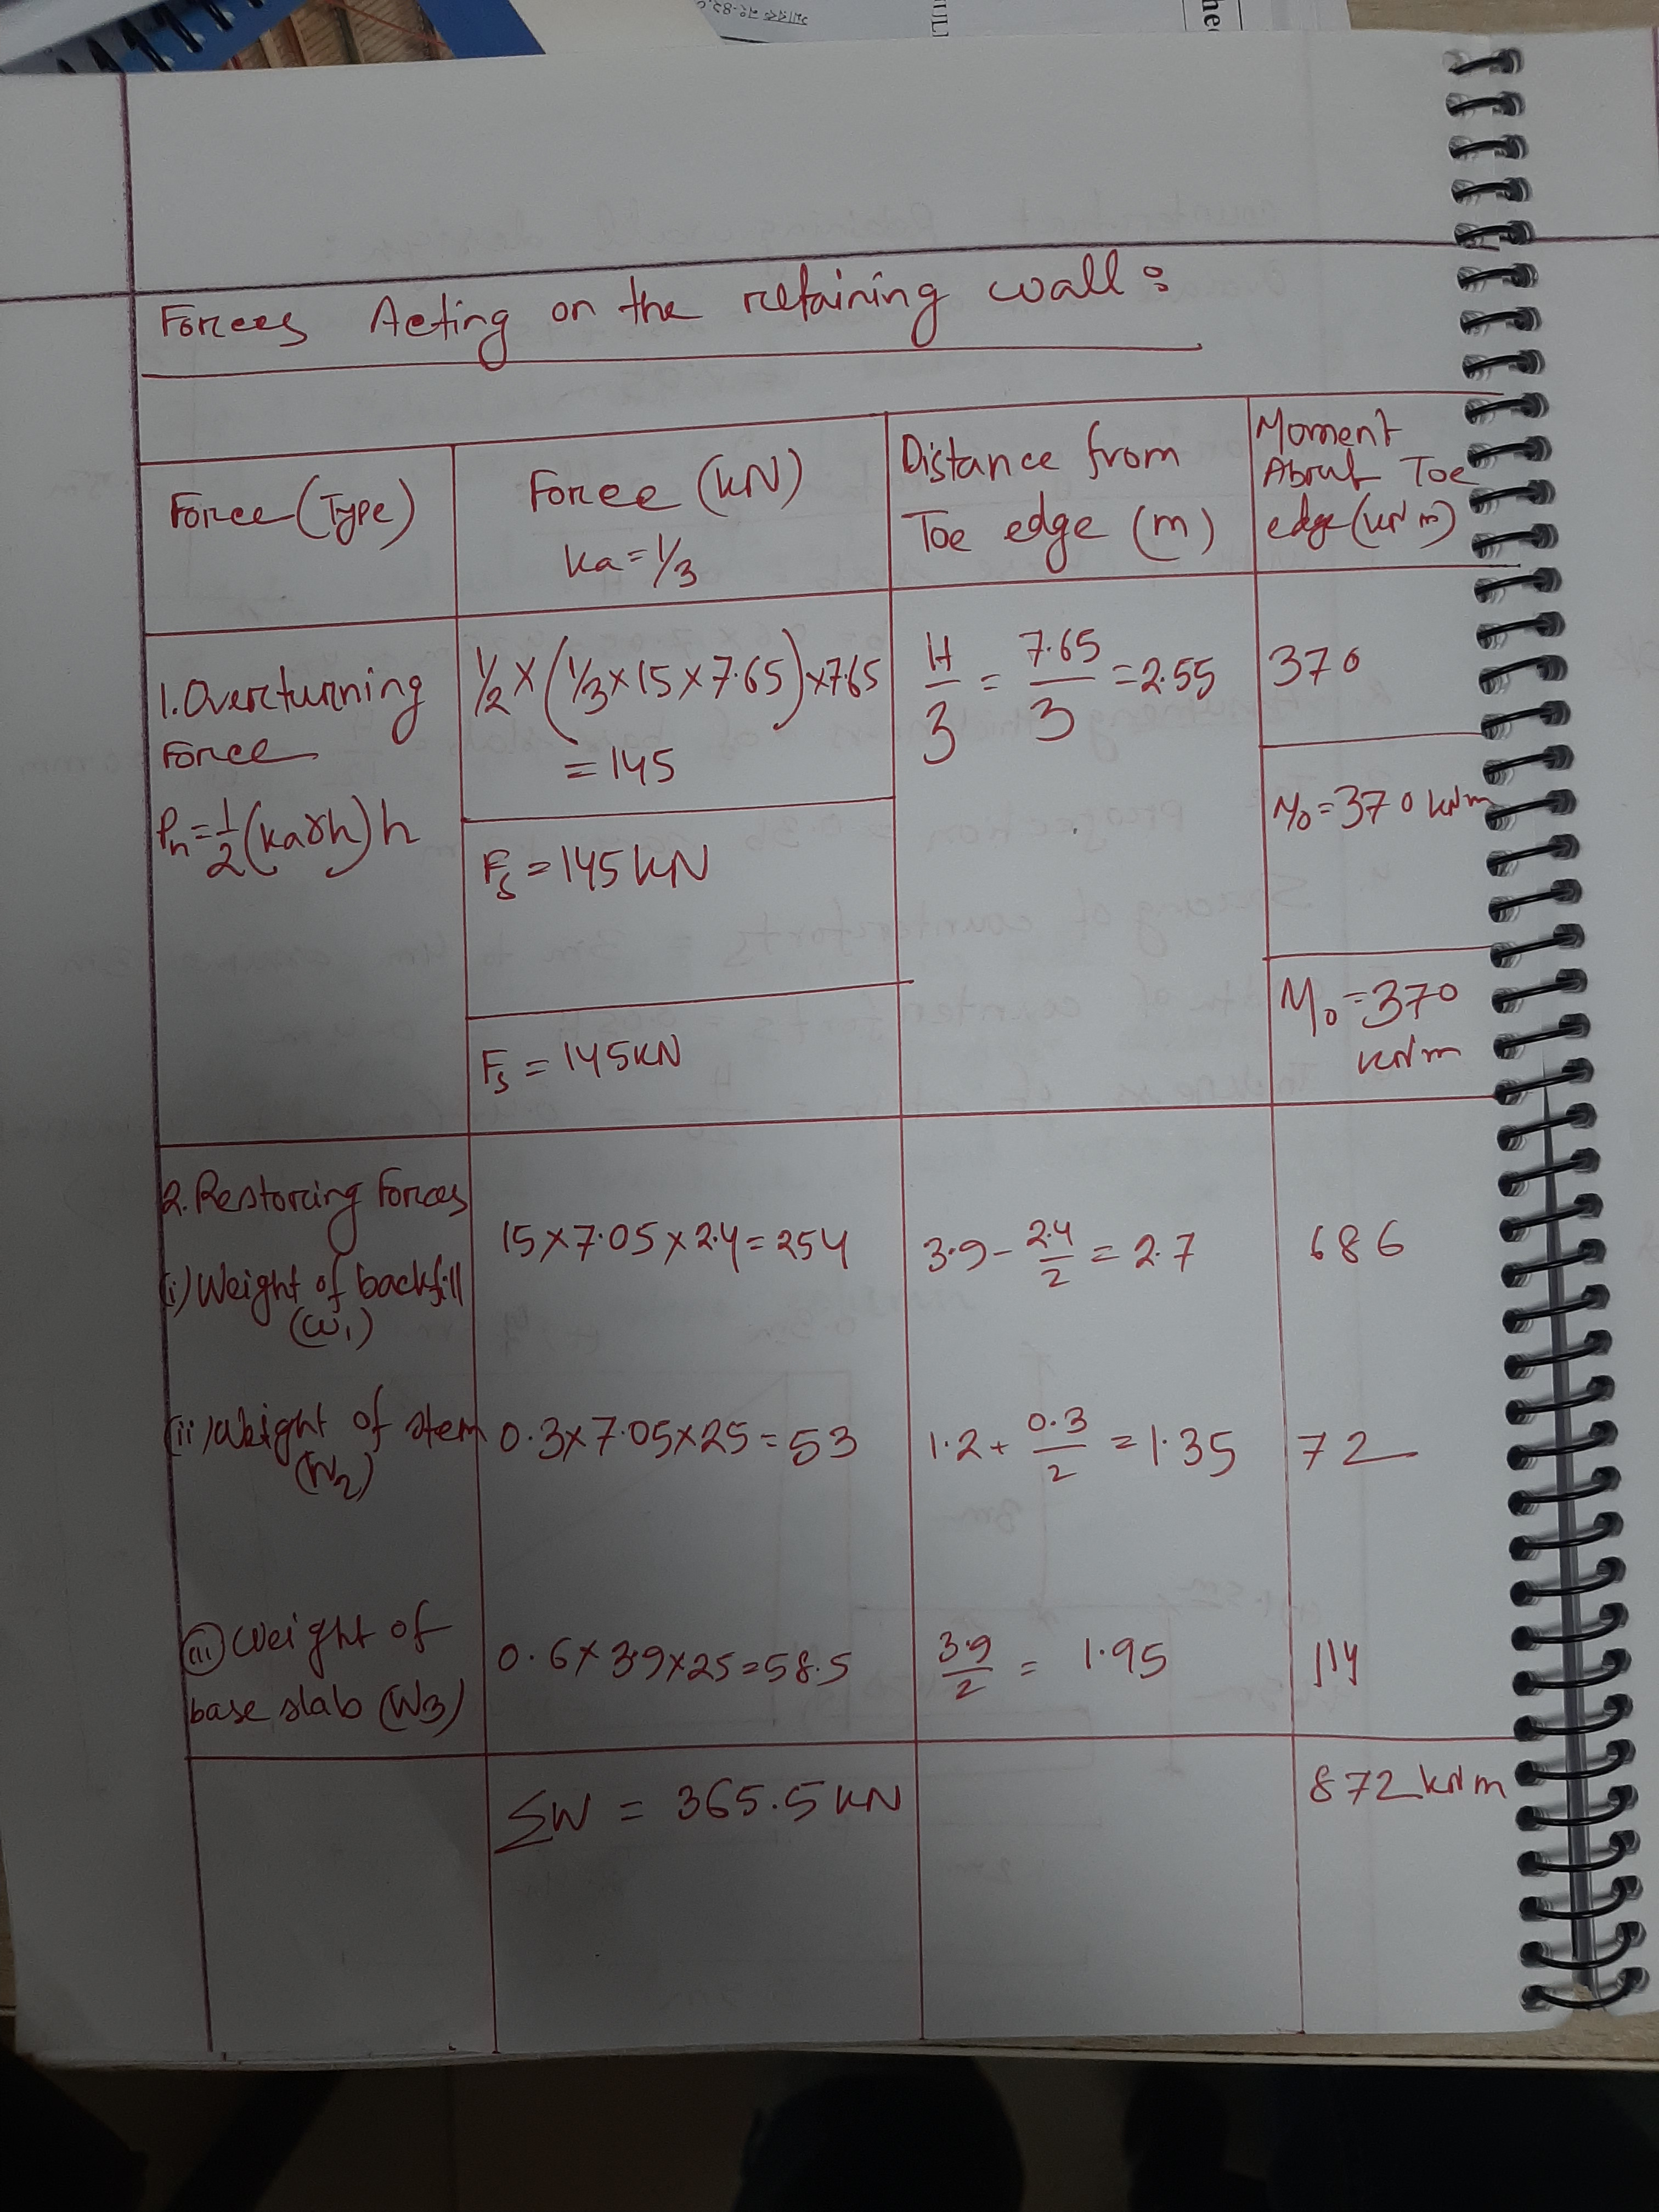 Forces Acting on the retaining wall:
Force (Type)
Force (kN)
ka = 1/3
Distance from
Toe edge (m)
Moment
About Toe
edge (kN m)
1. Overturning
Force
Pn = 1/2 (kaγh) h
1/2 × (1/3 × 15 × 7.65) × 7.65
= 145
Fs = 145 kN
Fs = 145 kN
H/3 = 7.65/3 = 2.55
370
Mo = 370 kNm
Mo = 370
kNm
2. Restoring Forces
(i) Weight of backfill
(W1)
15 × 7.05 × 2.4 = 254
3.9 - 2.4/2 = 2.7
686
(ii) Weight of stem
(W2)
0.3 × 7.05 × 25 = 53
1.2 + 0.3/2 = 1.35
72
(iii) Weight of
base slab (W3)
0.6 × 3.9 × 25 = 58.5
3.9/2 = 1.95
114
ΣW = 365.5 kN
872 kNm